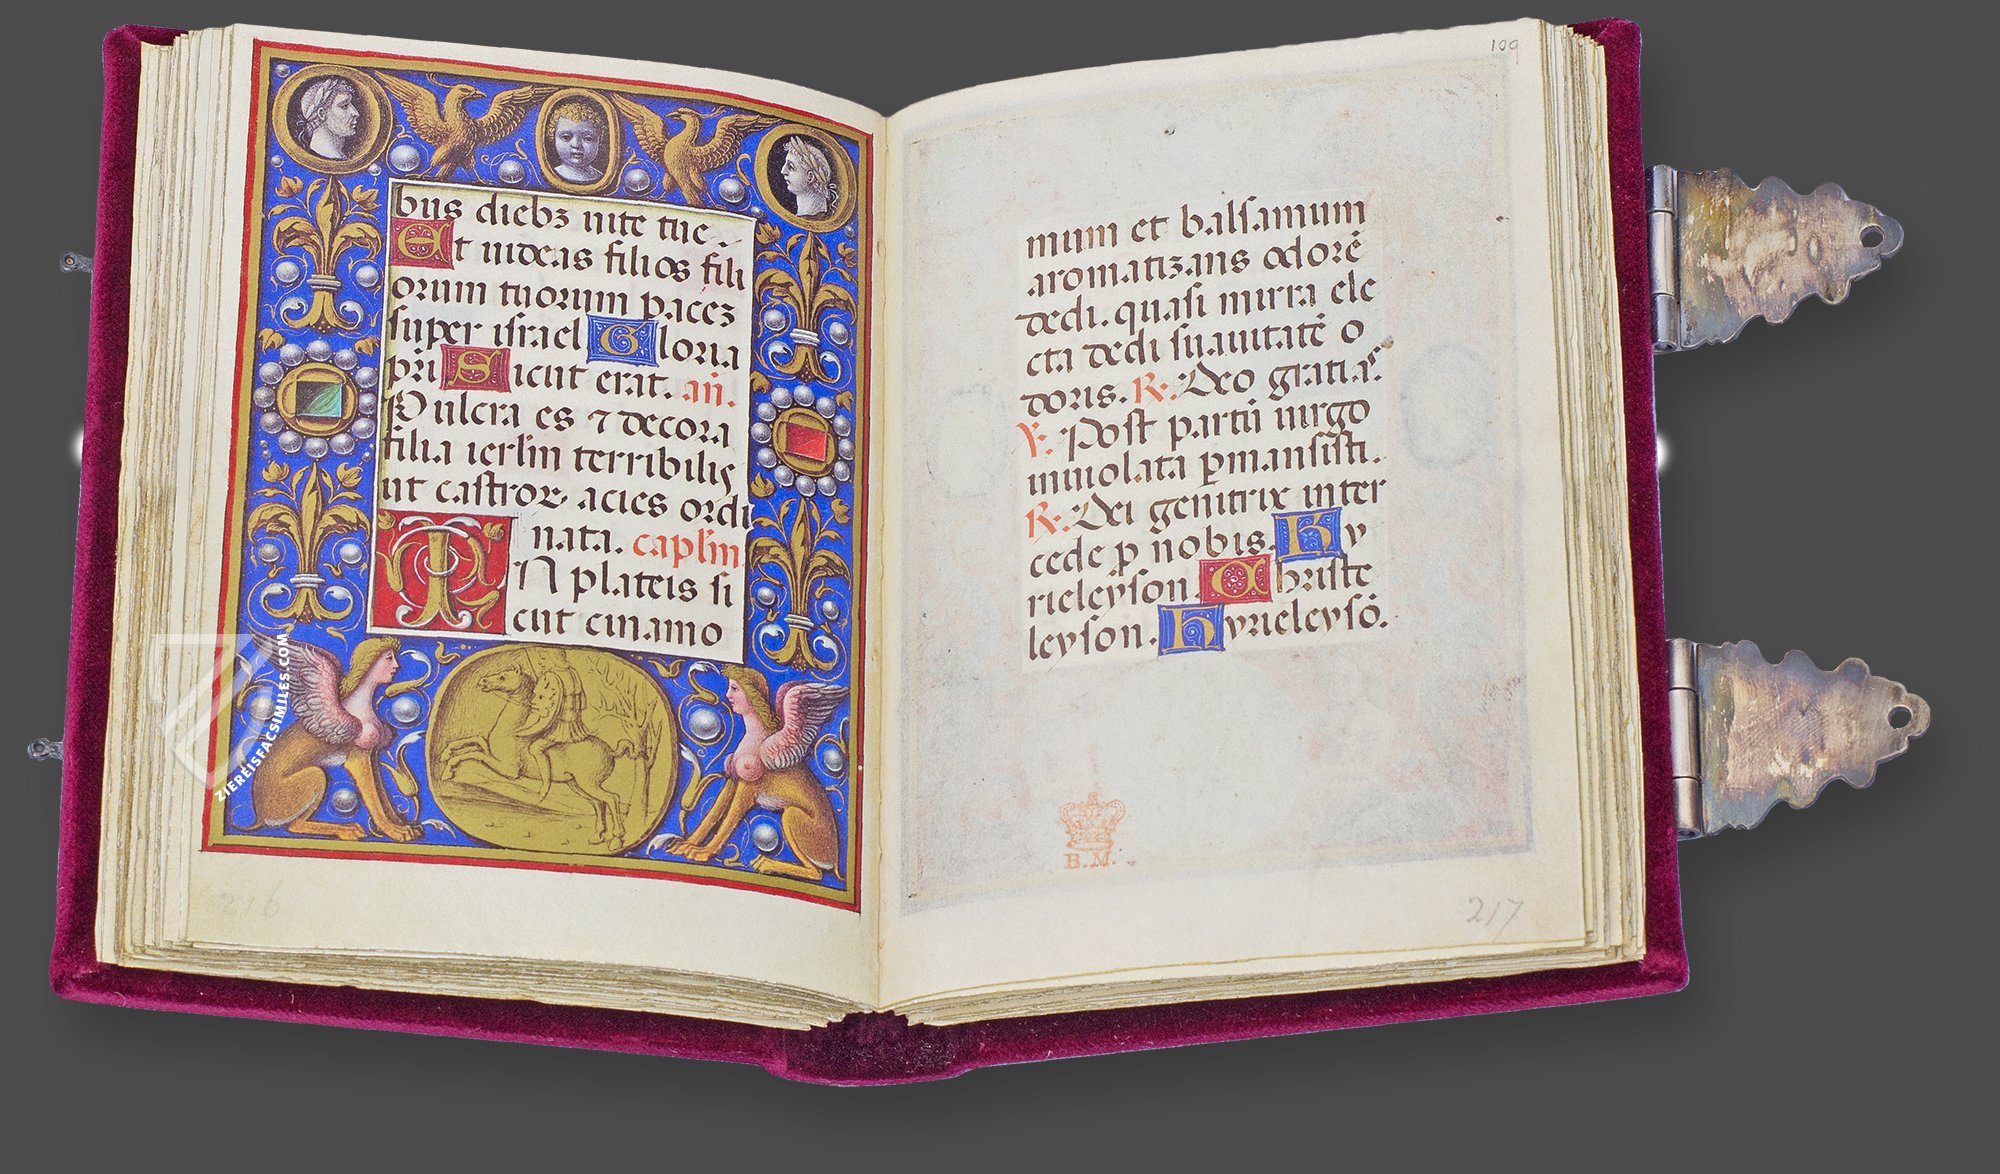 bus diebȝ uite tue.
Et uideas filios fili
orum tuorum pacez
super israel Gloria
pri Sicut erat. an̄.
Pulcra es ⁊ decora
filia ierlm terribilis
ut castroꝝ acies ordi
nata. caplm
IN plateis si
cut cinamo
216
ZIEREISFACSIMILES.COM
109
mum et balsamum
aromatizans odorē
dedi. quasi mirra ele
cta dedi suauitatē o
doris. R. Deo gratias.
V. Post partū uirgo
inuiolata ꝑmansisti.
R. Dei genitrix inter
cede ꝓ nobis. Ky
rieleyson. Christe
leyson. Kyrieleysō.
B.M.
217